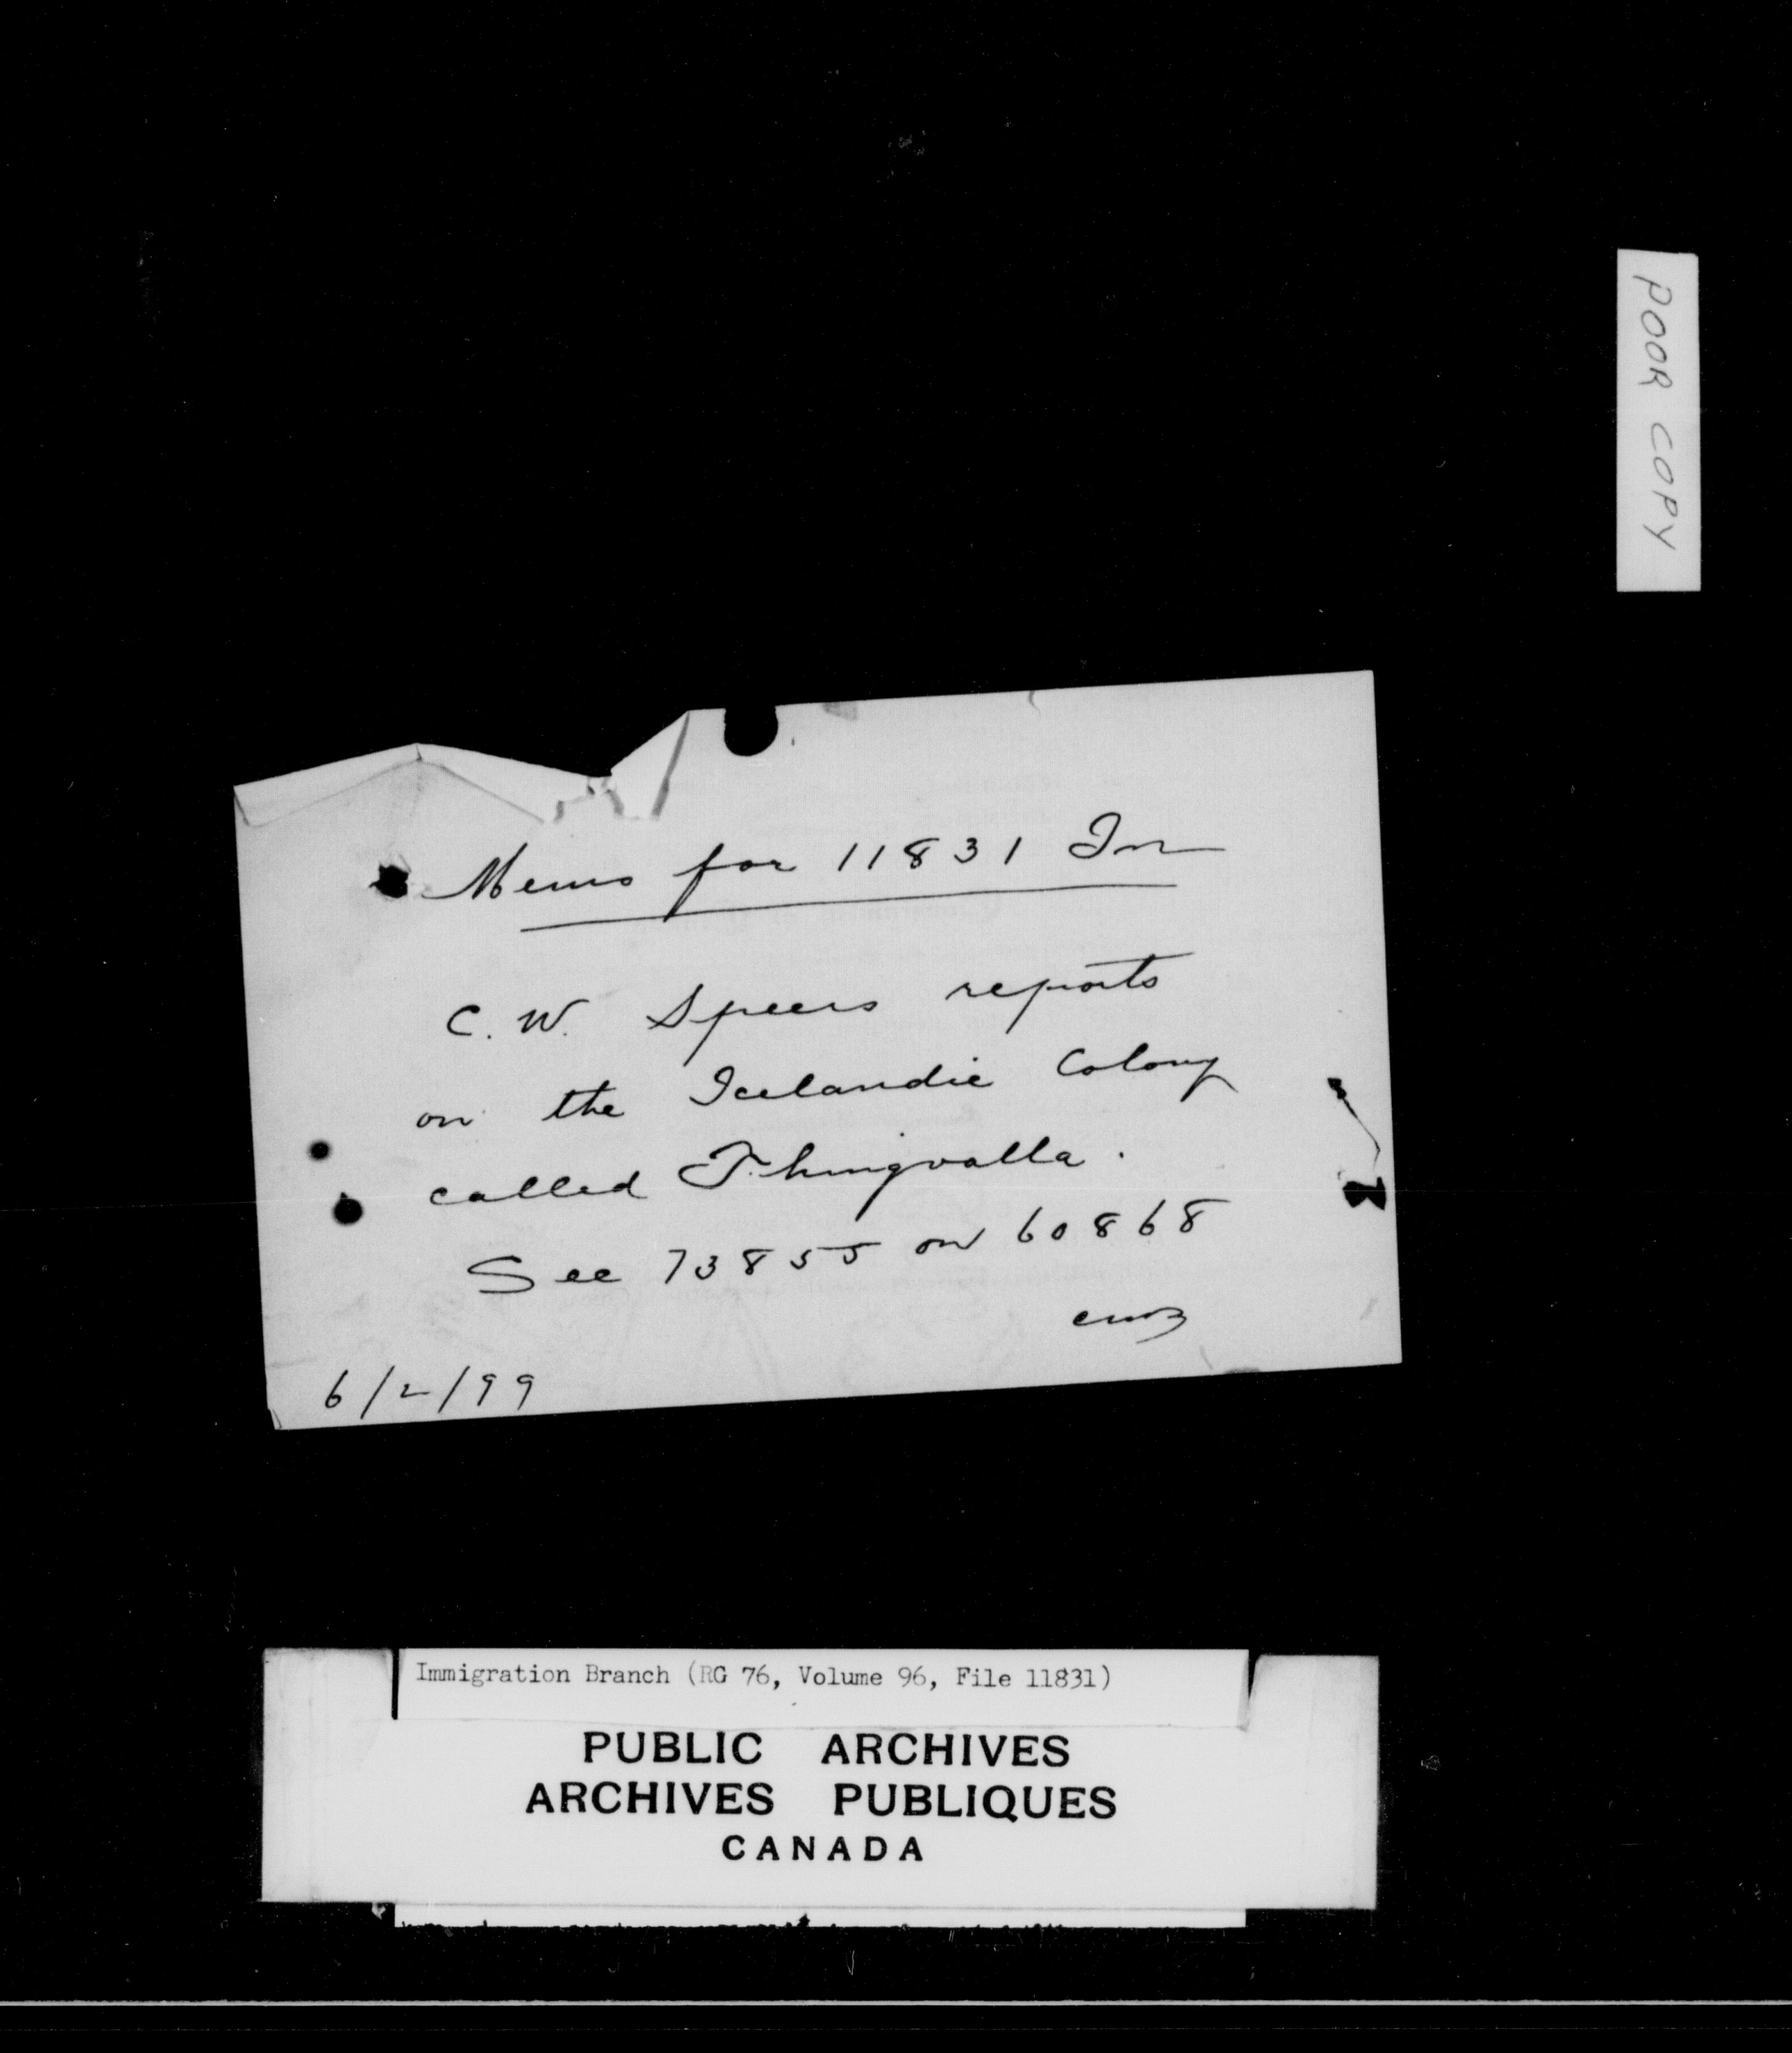 POOR COPY
Memo for 11831 Im
C. W. Speers reports
on the Icelandic Colony
called Thingvalla.
See 73855 on 60868
6/2/99
Immigration Branch (RG 76, Volume 96, File 11831)
PUBLIC ARCHIVES
ARCHIVES PUBLIQUES
CANADA